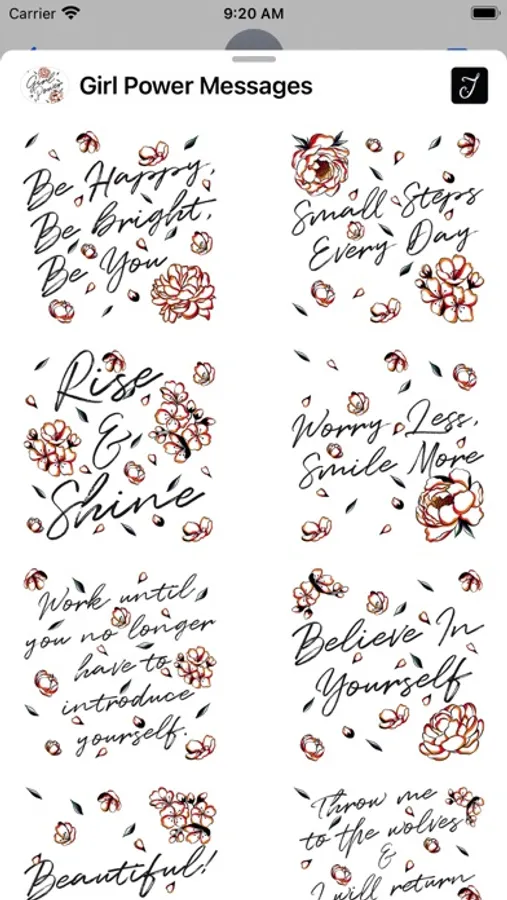 Carrier 9:20 AM
Girl Power
Girl Power Messages
J
Be Happy,
Be bright,
Be You
Small Steps
Every Day
Rise
&
Shine
Worry Less,
Smile More
Work until
you no longer
have to
introduce
yourself.
Believe In
Yourself
Beautiful!
Throw me
to the wolves
&
I will return